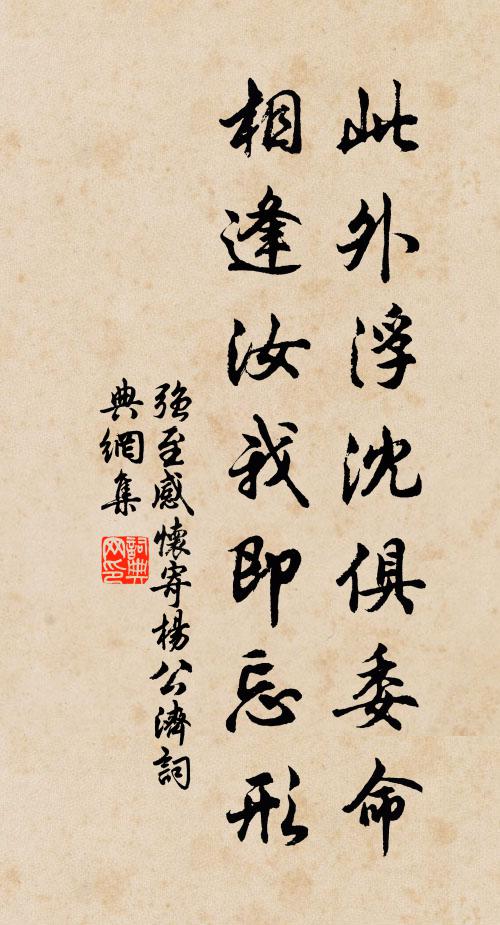 此外浮沈俱委命
相逢汝我即忘形
強至感懷寄楊公濟詞
典網集
詞典
网印